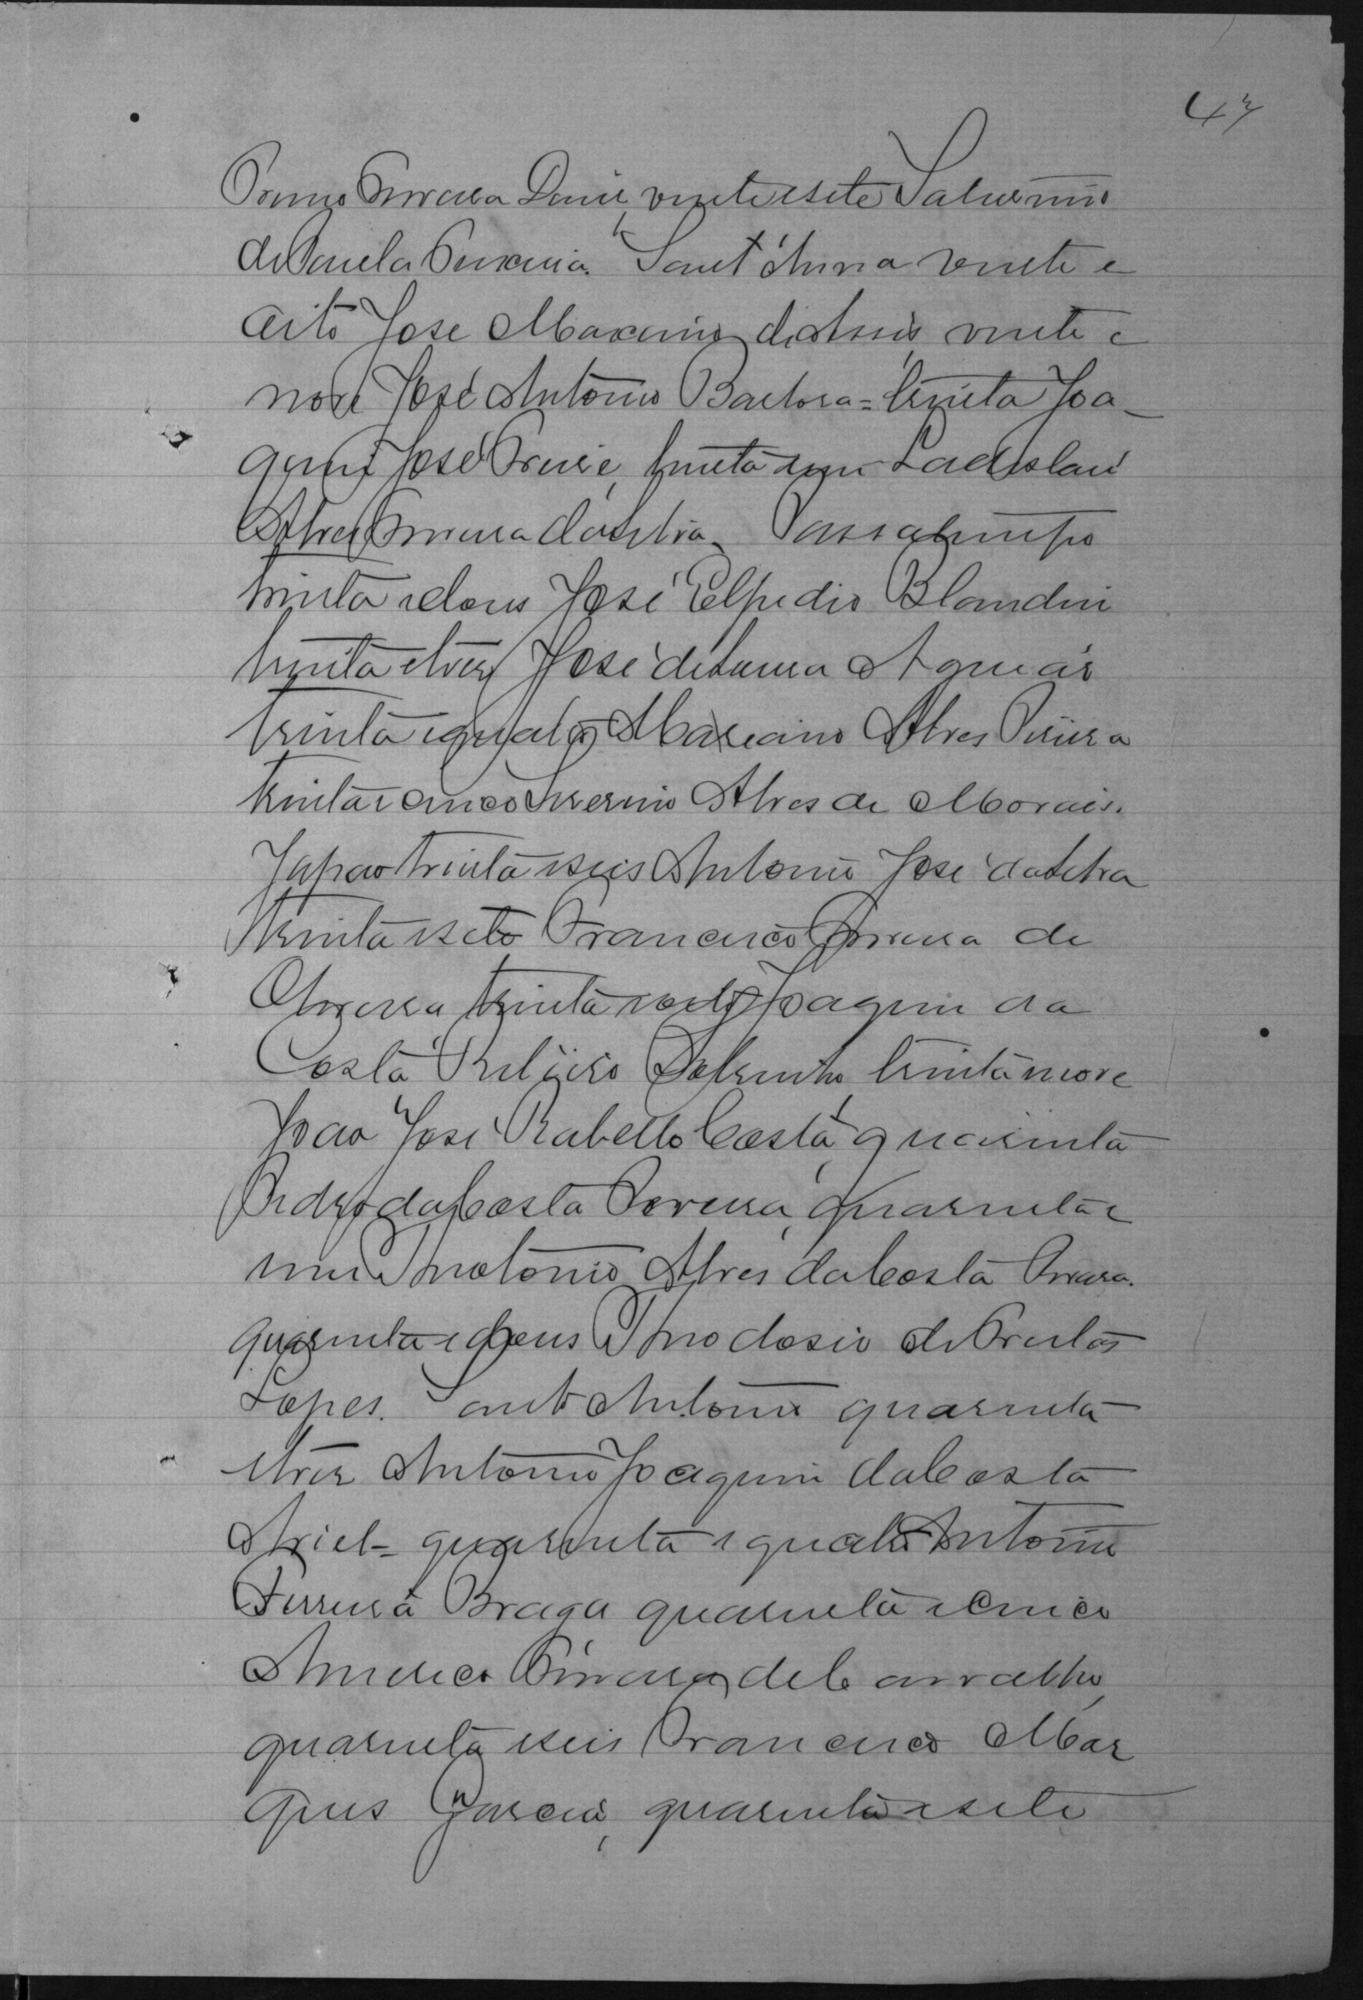 47
Ferreira Diniz, vinte e sete Saturnino
de Paula Ferreira. Sant'Anna vinte e
oito José Maximo de Assis, vinte e
nove José Antonio Barbosa = trinta Joa-
quim José Freire, trinta e um Ladislau
Alves Ferreira da Silva. Passatempo
trinta e dous José Elpidio Blandin
trinta e tres José de Aguiar
trinta e quatro Marciano Alves Vieira
trinta e cinco Alves de Moraes.
Japão trinta e seis Antonio José da Silva
trinta e sete Francisco Ferreira de
Oliveira trinta e oito Joaquim da
Costa Ribeiro Sobrinho, trinta e nove
João José Rabello Costa, quarenta
Pedro da Costa Pereira, quarenta e
um Antonio Alves da Costa
quarenta e dous Theodosio de Freitas
Lopes. Santo Antonio quarenta
e tres Antonio Joaquim da Costa
quarenta e quatro Antonio
Ferreira Braga quarenta e cinco
Americo Ferreira de Carvalho,
quarenta e seis Francisco Mar
ques Garcia, quarenta e sete